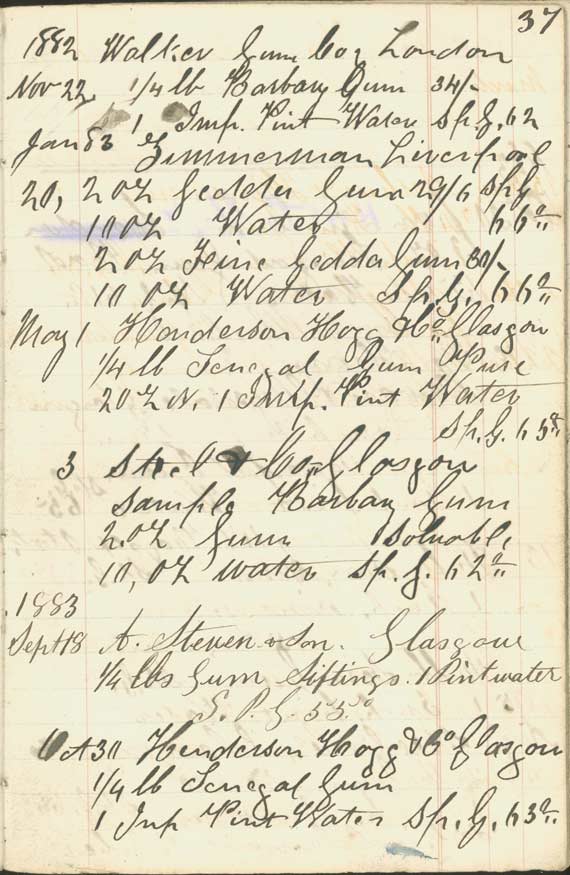 37
1882 Walker Gum Coy London
Nov 22, 1/4 lb Barbary Gum 34/-
1 Imp. Pint Water Sp. G. 62
Jan 83 Zimmerman Liverpool
20, 2 oz Gedda Gum 29/6 Sp G
10 oz Water 66°
2 oz Fine Gedda Gum 30/-
10 oz Water Sp. G. 66°
May 1 Henderson Hogg & Co Glasgow
1/4 lb Senegal Gum Pure
2 oz N. 1 Imp. Pint Water
Sp. G. 63°
3 Steel & Co, Glasgow
Sample Barbary Gum
2. oz Gum Soluable
10, oz water Sp. G. 62°
1883
Sept 18 A. Steven & Son. Glasgow
1/4 lbs Gum Siftings. 1 Pint water
S. P. G. 55.°
Oct 30 Henderson Hogg & Co Glasgow
1/4 lb Senegal Gum
1 Imp Pint Water Sp. G. 63°